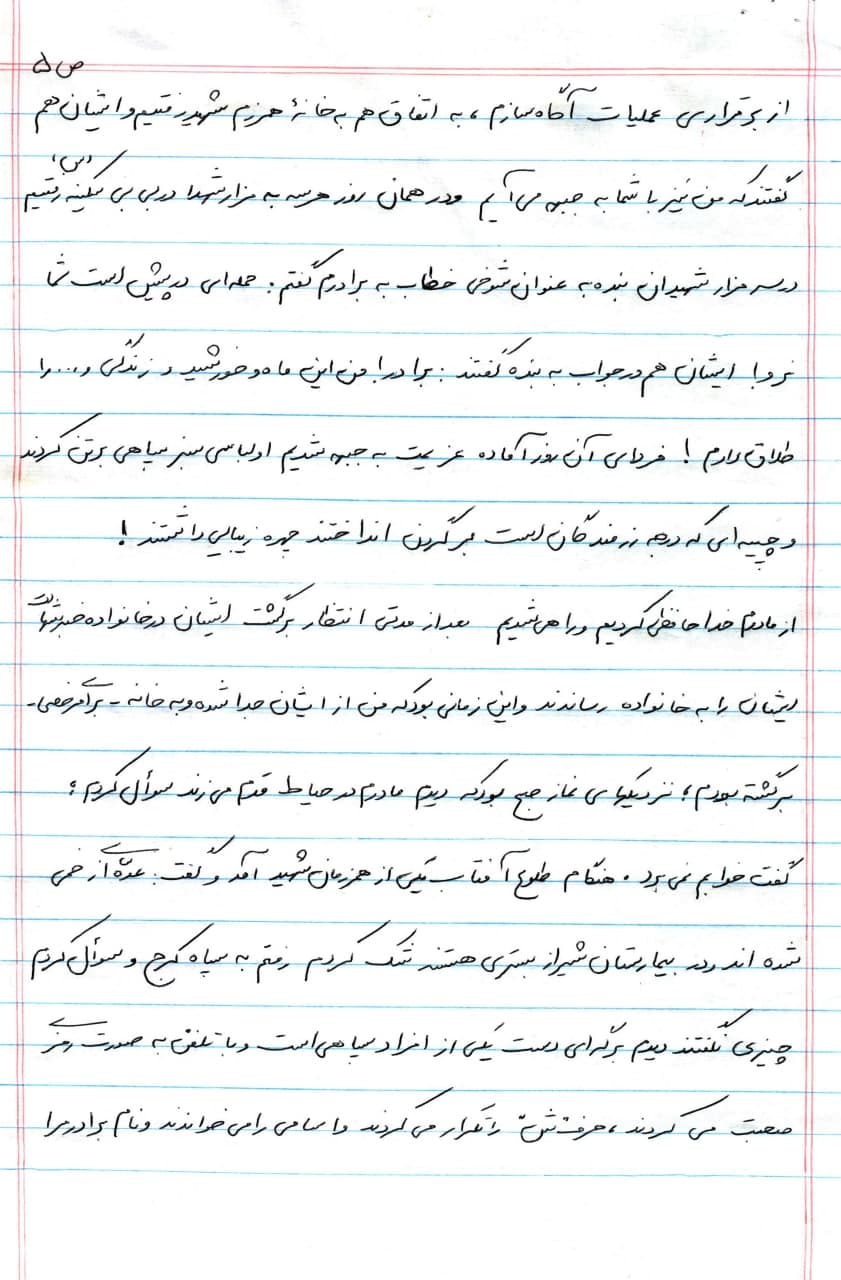 ص ۵
از برقراری عملیات آگاه سازم ، به اتفاق هم به خانهٔ همرزم شهید رفتیم و ایشان هم
گفتند که من نیز با شما به جبهه می آیم و در همان روز هرسه به مزار شهدا در بی بی سکینه (س) رفتیم
در سر مزار شهیدان بنده به عنوان شوخی خطاب به برادرم گفتم : حمله ای در پیش است شما
نرو! ایشان هم در جواب به بنده گفتند : برادر! من این ماه و خورشید و زندگی و ... را
طلاق دادم ! فردای آن روز آماده عزیمت به جبهه شدیم او لباسی سبز سپاهی برتن کردند
و چپیه ای که درجه رزمندگان است بر گردن انداختند چهره زیبایی داشتند !
از مادرم خداحافظی کردیم و راهی شدیم بعد از مدتی انتظار برگشت ایشان در خانواده خبر شهادت
ایشان را به خانواده رساندند و این زمانی بود که من از ایشان جدا شده و به خانه - برای مرخصی -
برگشته بودم ؛ نزدیکهای نماز صبح بود که دیدم مادرم در حیاط قدم می زند سوال کردم ؛
گفت خوابم نمی برد . هنگام طلوع آفتاب یکی از همرزمان شهید آمد و گفت : عدّه ای زخمی
شده اند و در بیمارستان شیراز بستری هستند شک کردم رفتم به سپاه کرج و سوال کردم
چیزی نگفتند دیدم برگه ای دست یکی از افراد سپاهی است و با تلفن به صورت رمزی
صحبت می کردند ، حرف "ش" را تکرار می کردند و اسامی را می خواندند و نام برادر مرا